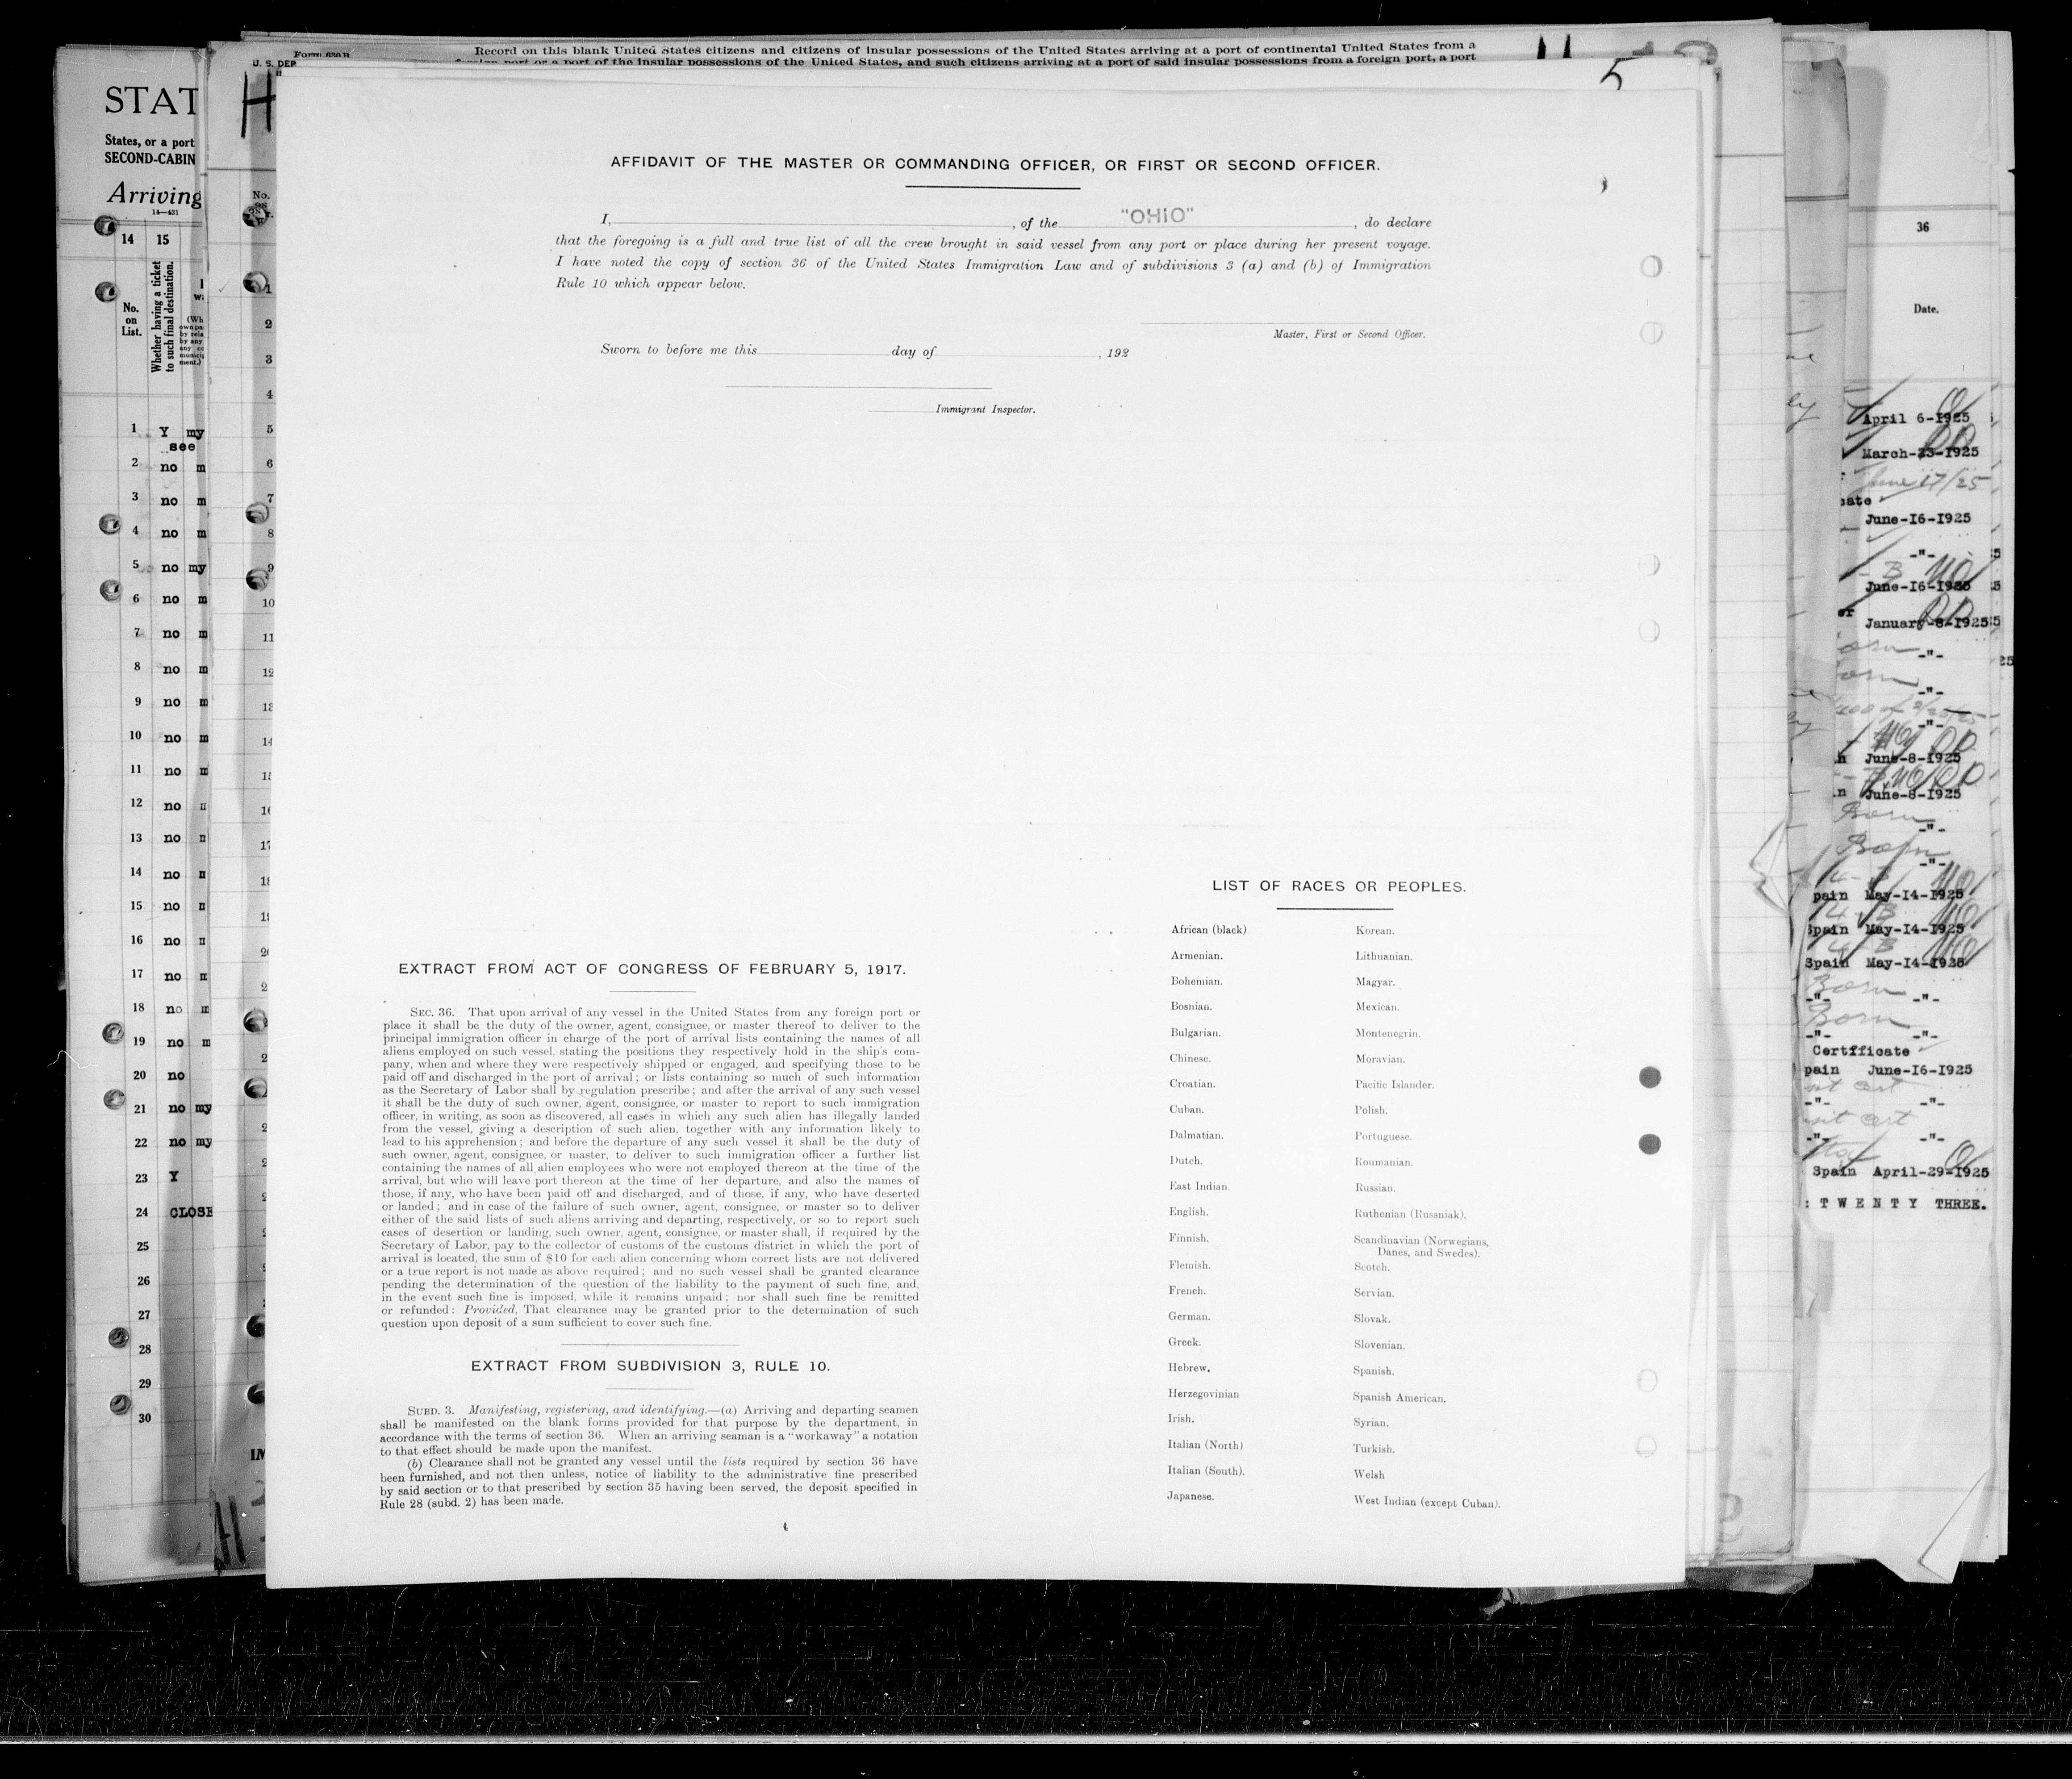 Form 630 B
Record on this blank United States citizens and citizens of insular possessions of the United States arriving at a port of continental United States from a
U. S. DEP
foreign port or a port of the insular possessions of the United States, and such citizens arriving at a port of said insular possessions from a foreign port, a port
H
5
STAT
States, or a port
SECOND-CABIN
Arriving
14—431
14 15
No. on List.
Whether having a ticket to such final destination.
1 Y my
see
2 no m
3 no m
4 no m
5 no my
6 no m
7 no m
8 no m
9 no m
10 no m
11 no m
12 no
13 no
14 no
15 no
16 no
17 no
18 no
19 no m
20 no
21 no my
22 no my
23 Y
24 CLOSE
25
26
27
28
29
30
No.
1
2
3
4
5
6
7
8
9
10
11
12
AFFIDAVIT OF THE MASTER OR COMMANDING OFFICER, OR FIRST OR SECOND OFFICER.
I, , of the "OHIO" , do declare
that the foregoing is a full and true list of all the crew brought in said vessel from any port or place during her present voyage.
I have noted the copy of section 36 of the United States Immigration Law and of subdivisions 3 (a) and (b) of Immigration
Rule 10 which appear below.
Master, First or Second Officer.
Sworn to before me this day of , 192
Immigrant Inspector.
EXTRACT FROM ACT OF CONGRESS OF FEBRUARY 5, 1917.
SEC. 36. That upon arrival of any vessel in the United States from any foreign port or
place it shall be the duty of the owner, agent, consignee, or master thereof to deliver to the
principal immigration officer in charge of the port of arrival lists containing the names of all
aliens employed on such vessel, stating the positions they respectively hold in the ship's com-
pany, when and where they were respectively shipped or engaged, and specifying those to be
paid off and discharged in the port of arrival; or lists containing so much of such information
as the Secretary of Labor shall by regulation prescribe; and after the arrival of any such vessel
it shall be the duty of such owner, agent, consignee, or master to report to such immigration
officer, in writing, as soon as discovered, all cases in which any such alien has illegally landed
from the vessel, giving a description of such alien, together with any information likely to
lead to his apprehension; and before the departure of any such vessel it shall be the duty of
such owner, agent, consignee, or master, to deliver to such immigration officer a further list
containing the names of all alien employees who were not employed thereon at the time of the
arrival, but who will leave port thereon at the time of her departure, and also the names of
those, if any, who have been paid off and discharged, and of those, if any, who have deserted
or landed; and in case of the failure of such owner, agent, consignee, or master so to deliver
either of the said lists of such aliens arriving and departing, respectively, or so to report such
cases of desertion or landing, such owner, agent, consignee, or master shall, if required by the
Secretary of Labor, pay to the collector of customs of the customs district in which the port of
arrival is located, the sum of $10 for each alien concerning whom correct lists are not delivered
or a true report is not made as above required; and no such vessel shall be granted clearance
pending the determination of the question of the liability to the payment of such fine, and,
in the event such fine is imposed, while it remains unpaid; nor shall such fine be remitted
or refunded: Provided, That clearance may be granted prior to the determination of such
question upon deposit of a sum sufficient to cover such fine.
EXTRACT FROM SUBDIVISION 3, RULE 10.
SUBD. 3. Manifesting, registering, and identifying.—(a) Arriving and departing seamen
shall be manifested on the blank forms provided for that purpose by the department, in
accordance with the terms of section 36. When an arriving seaman is a "workaway" a notation
to that effect should be made upon the manifest.
(b) Clearance shall not be granted any vessel until the lists required by section 36 have
been furnished, and not then unless, notice of liability to the administrative fine prescribed
by said section or to that prescribed by section 35 having been served, the deposit specified in
Rule 28 (subd. 2) has been made.
LIST OF RACES OR PEOPLES.
African (black)
Armenian.
Bohemian.
Bosnian.
Bulgarian.
Chinese.
Croatian.
Cuban.
Dalmatian.
Dutch.
East Indian.
English.
Finnish.
Flemish.
French.
German.
Greek.
Hebrew.
Herzegovinian
Irish.
Italian (North)
Italian (South).
Japanese.
Korean.
Lithuanian.
Magyar.
Mexican.
Montenegrin.
Moravian.
Pacific Islander.
Polish.
Portuguese.
Roumanian.
Russian.
Ruthenian (Russniak).
Scandinavian (Norwegians,
Danes, and Swedes).
Scotch.
Servian.
Slovak.
Slovenian.
Spanish.
Spanish American.
Syrian.
Turkish.
Welsh
West Indian (except Cuban).
36
Date.
April 6-1925
March-23-1925
June 17/25
June-16-1925
-"-
June-16-1925
January-8-1925
-"-
-"-
-"-
June-8-1925
June-8-1925
Born
-"-
Born
-"-
pain May-14-1925
Spain May-14-1925
Spain May-14-1925
Born
-"- -"-
Born
-"- -"-
Certificate
pain June-16-1925
-"- -"-
-"- -"-
Spain April-29-1925
: T W E N T Y THREE.